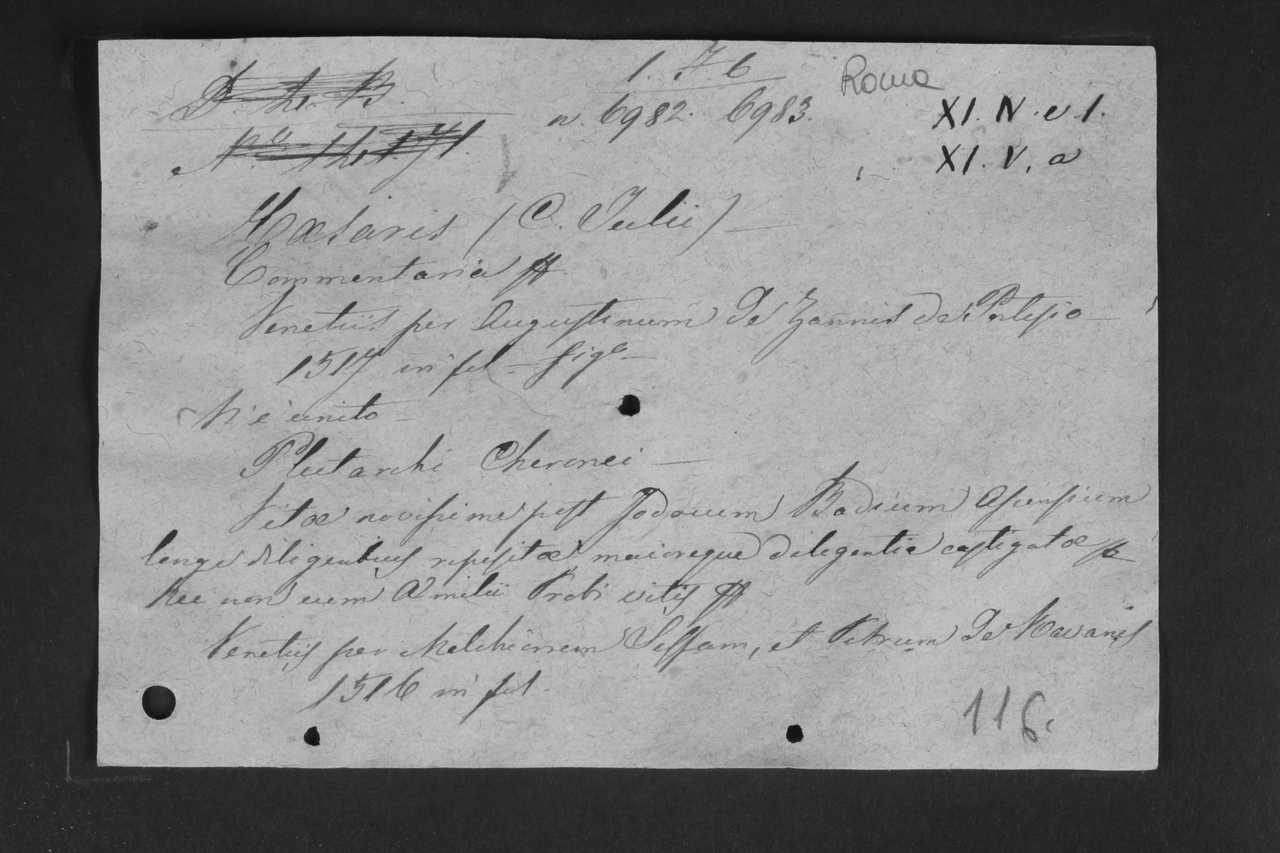 1. 7. 6
Roma
n. 6982. 6983.
XI. N. e 1.
XI. V. a
Cæsaris (C. Julii) —
Commentaria
Venetiis per Augustinum De Zannis de Portesio —
1517 in fol. — fig.e —
V'è unito —
Plutarchi Cheronei —
Vitæ novissime post Jodocum Badium Ascensium
longe diligentius repositæ maioreque diligentia castigatæ
nec non cum Æmilii Probi vitis
Venetiis per Melchiorem Sessam, et Petrum De Ravanis
1516 in fol.
116.